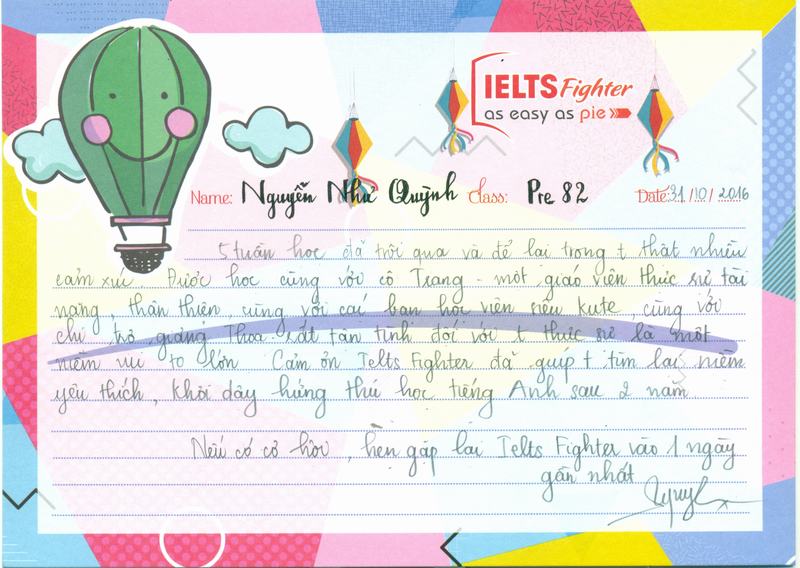 IELTS Fighter
as easy as pie
Name: Nguyễn Như Quỳnh Class: Pre 82 Date: 31/10/2016
5 tuần học đã trôi qua và để lại trong t thật nhiều
cảm xúc. Được học cùng với cô Trang - một giáo viên thực sự tài
năng, thân thiện, cùng với các bạn học viên siêu kute, cùng với
chị trợ giảng Thoa rất tận tình đối với t thực sự là một
niềm vui to lớn. Cảm ơn Ielts Fighter đã giúp t tìm lại niềm
yêu thích, khơi dậy hứng thú học tiếng Anh sau 2 năm
Nếu có cơ hội, hẹn gặp lại Ielts Fighter vào 1 ngày
gần nhất